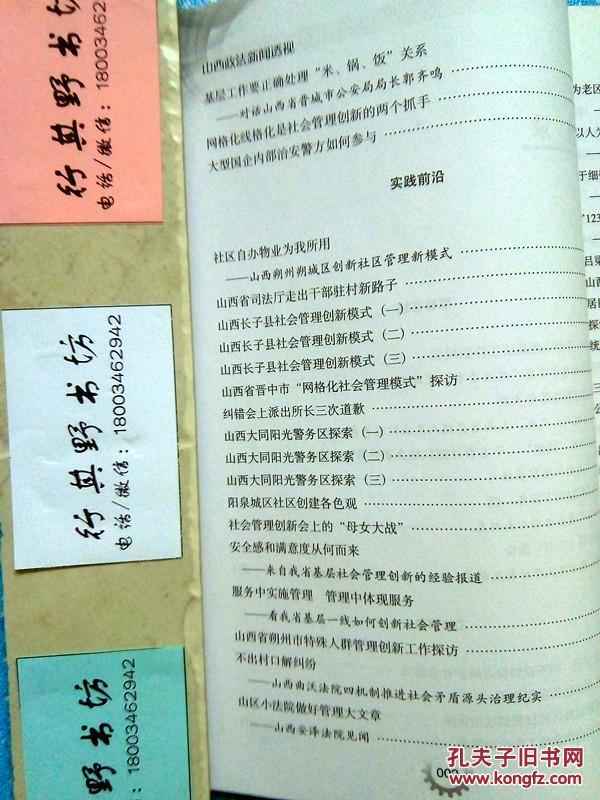 行与野书坊
电话/微信：18003462942
行与野书坊
电话/微信：18003462942
野书坊
微信：18003462942
山西政法新闻透视
基层工作要正确处理“米、锅、饭”关系
——对话山西省晋城市公安局局长郭齐鸣
网格化线格化是社会管理创新的两个抓手
大型国企内部治安警方如何参与
实践前沿
社区自办物业为我所用
——山西朔州朔城区创新社区管理新模式
山西省司法厅走出干部驻村新路子
山西长子县社会管理创新模式（一）
山西长子县社会管理创新模式（二）
山西长子县社会管理创新模式（三）
山西省晋中市“网格化社会管理模式”探访
纠错会上派出所长三次道歉
山西大同阳光警务区探索（一）
山西大同阳光警务区探索（二）
山西大同阳光警务区探索（三）
阳泉城区社区创建各色观
社会管理创新会上的“母女大战”
安全感和满意度从何而来
——来自我省基层社会管理创新的经验报道
服务中实施管理 管理中体现服务
——看我省基层一线如何创新社会管理
山西省朔州市特殊人群管理创新工作探访
不出村口解纠纷
——山西曲沃法院四机制推进社会矛盾源头治理纪实
山区小法院做好管理大文章
——山西安泽法院见闻
为老区
以人为
于细
"123
吕梁
山西
居
探
统
孔夫子旧书网
www.kongfz.com